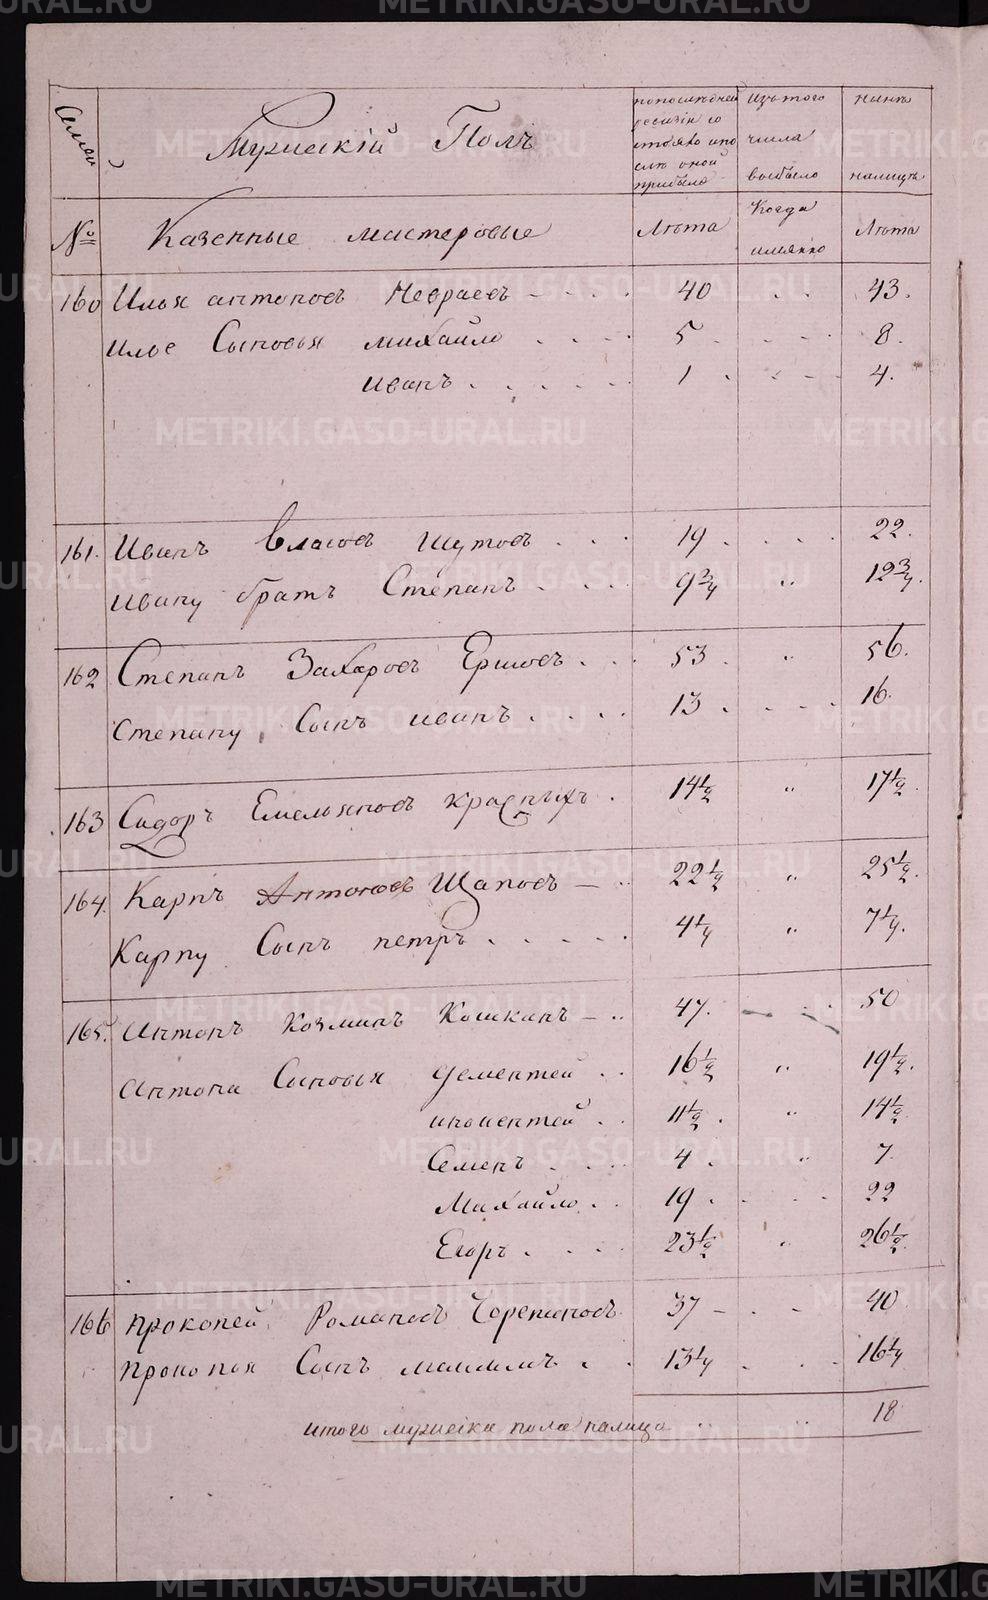 Семей Мужескій Полъ
попоследней ревизіи со стояло ипо сле оной прибыло
изътого числа выбыло
ныне налицѣ
№ Казенные мастеровые Лѣта Когда имянно Лѣта
160 Илья антоновъ Невраевъ 40 43.
Илье Сыновья михайло 5 8.
иванъ 1 4.
161. Иванъ Власовъ Шутовъ 19 22.
ивану братъ Степанъ 9 3/4 " 12 3/4.
162 Степанъ Захаровъ Ершовъ 53 " 56.
степану Сынъ иванъ 13 16.
163 Сидоръ Емельяновъ красныхъ 14 1/2 " 17 1/2.
164. Карпъ Антоновъ Щаповъ 22 1/2 " 25 1/2.
Карпу Сынъ петръ 4 1/4 " 7 1/4.
165. Антонъ Козминъ Кошкинъ 47. 50
антона Сыновья дементей 16 1/2 " 19 1/2.
инокентей 11 1/2. " 14 1/2
Семенъ 4. " 7.
Михайло 19. 22
Егоръ 23 1/2 " 26 1/2.
166 прокопей Романовъ 37 40
прокопья Сынъ максимъ 13 1/4 16 1/4
итого мужеска пола налицо 18
METRIKI.GASO-URAL.RU